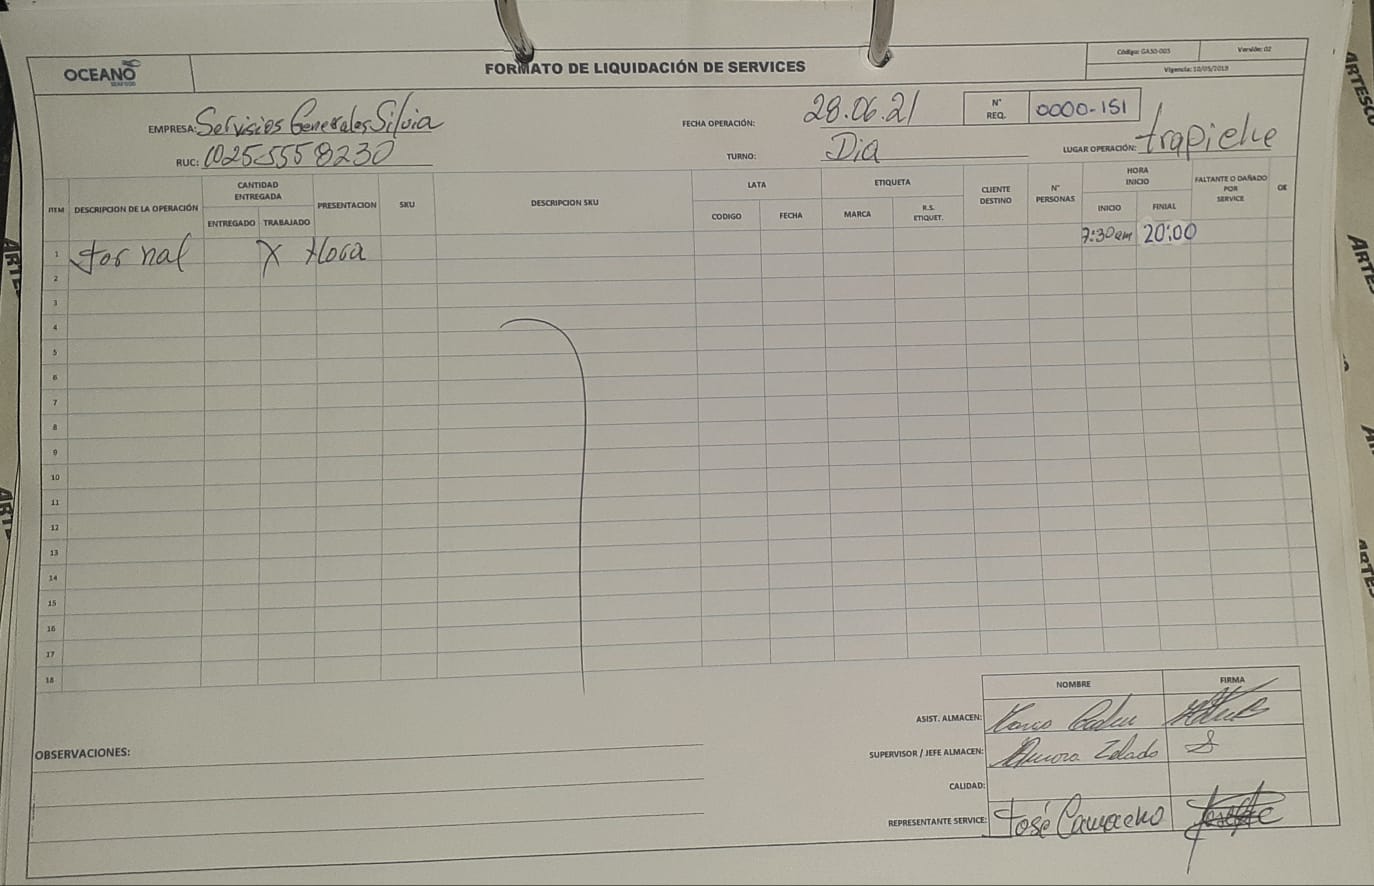 OCEANO
SEAFOOD
FORMATO DE LIQUIDACIÓN DE SERVICES
Código: GA30-003
Versión: 02
Vigencia: 10/05/2019
EMPRESA: Servisios Generales Silvia
FECHA OPERACIÓN: 28.06.21
N° REQ. 0000-151
RUC: 10255558230
TURNO: Dia
LUGAR OPERACIÓN: trapiche
ITEM
DESCRIPCION DE LA OPERACIÓN
CANTIDAD ENTREGADA
ENTREGADO
TRABAJADO
PRESENTACION
SKU
DESCRIPCION SKU
LATA
CODIGO
FECHA
ETIQUETA
MARCA
R.S. ETIQUET.
CLIENTE DESTINO
N° PERSONAS
HORA INICIO
INICIO
FINIAL
FALTANTE O DAÑADO POR SERVICE
OE
1 Jornal X Hora 7:30am 20:00
2
3
4
5
6
7
8
9
10
11
12
13
14
15
16
17
18
NOMBRE
FIRMA
ASIST. ALMACEN:
SUPERVISOR / JEFE ALMACEN: Zelado
CALIDAD:
REPRESENTANTE SERVICE: José Camacho
OBSERVACIONES:
ARTESCO